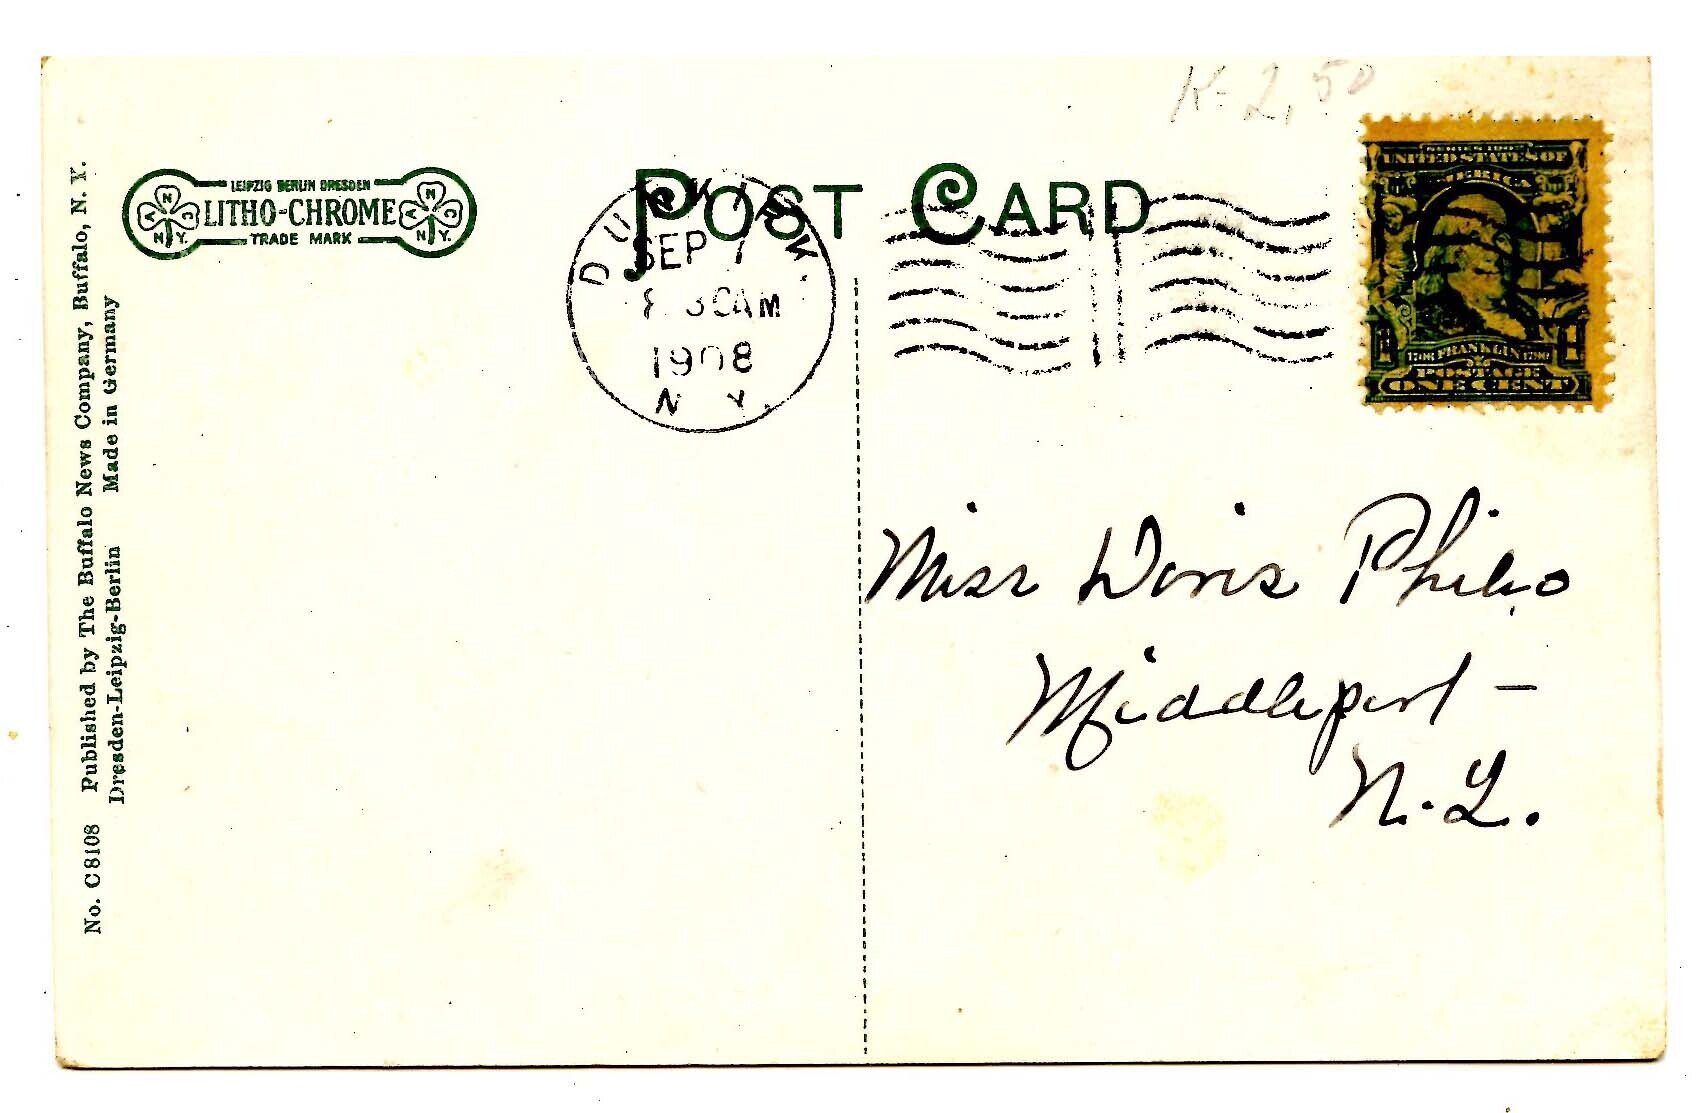 K- 2,50
POST CARD
LEIPZIG BERLIN DRESDEN
LITHO-CHROME
TRADE MARK
A N C N.Y.
A N C N.Y.
DUNKIRK
SEP 7
8 30AM
1908
N. Y.
SERIES 1902
UNITED STATES OF
AMERICA
1706 FRANKLIN 1790
POSTAGE
ONE CENT
1 1
Miss Doris Philo
Middleport -
N.Y.
No. C8108 Published by The Buffalo News Company, Buffalo, N. Y.
Dresden-Leipzig-Berlin Made in Germany